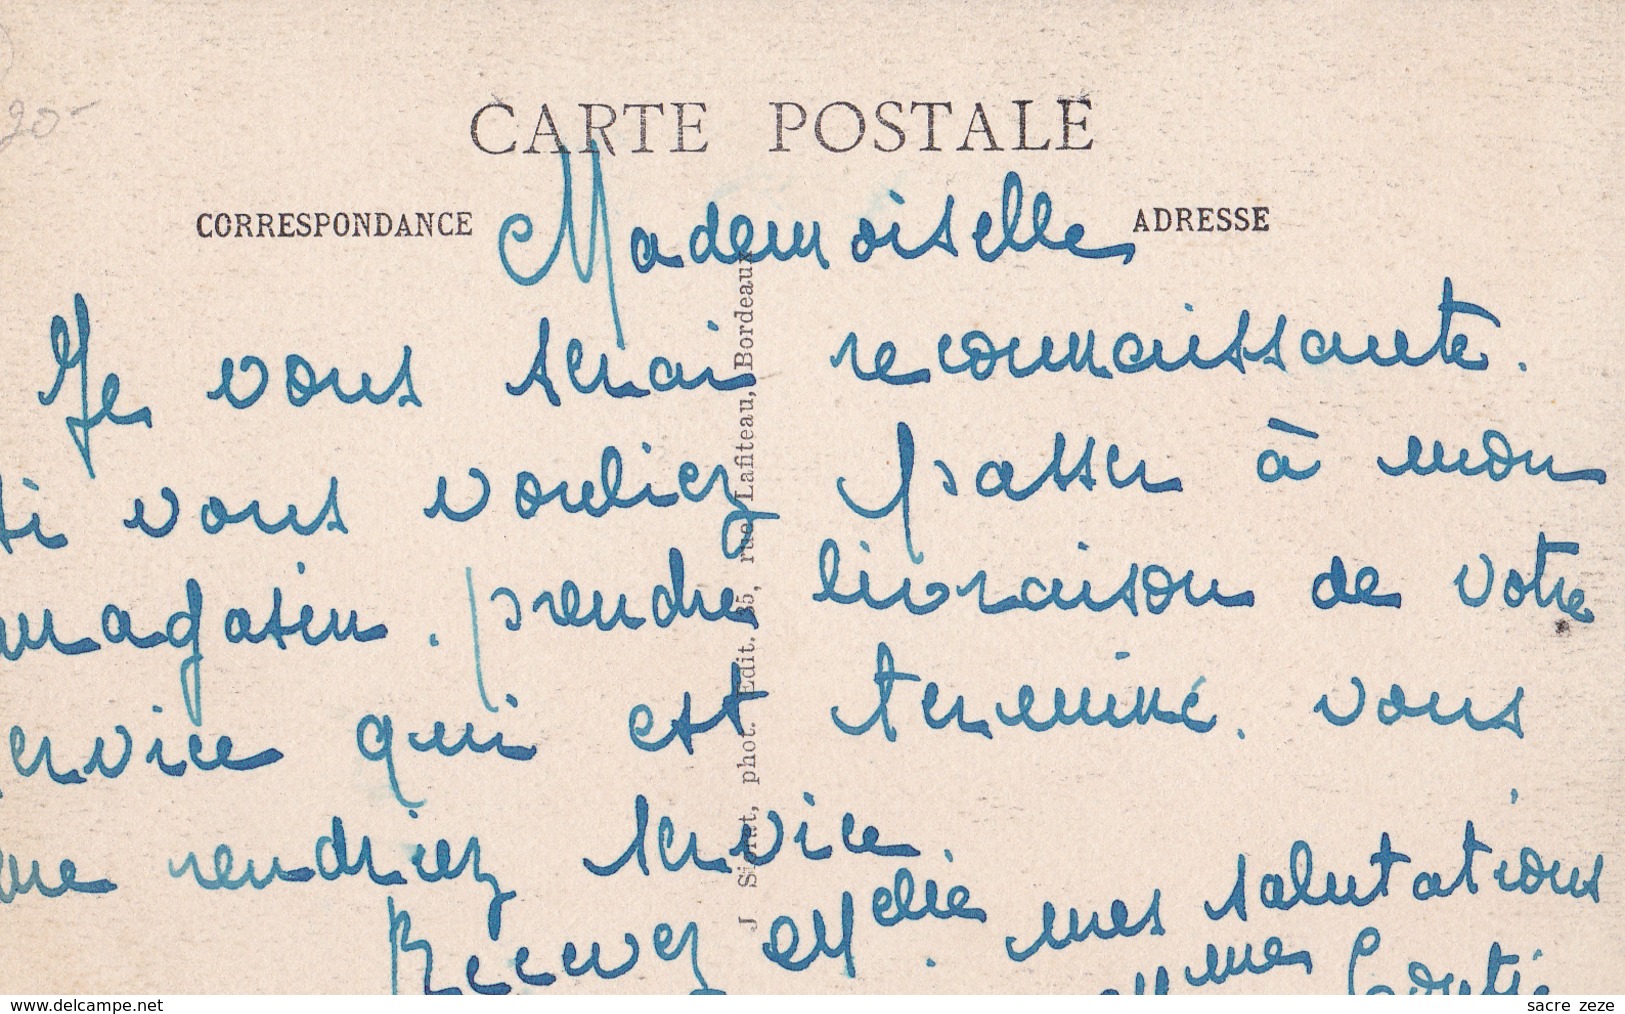 20-
CARTE POSTALE
CORRESPONDANCE
ADRESSE
Mademoiselle
Je vous serai reconnaissante.
si vous vouliez passer à mon
magasin. prendre livraison de votre
service qui est terminé. vous
me rendriez service.
Recevez Melle. mes salutations
Mme
J phot. Edit. 35, rue Lafiteau, Bordeaux
delcampe.net
sacre zeze